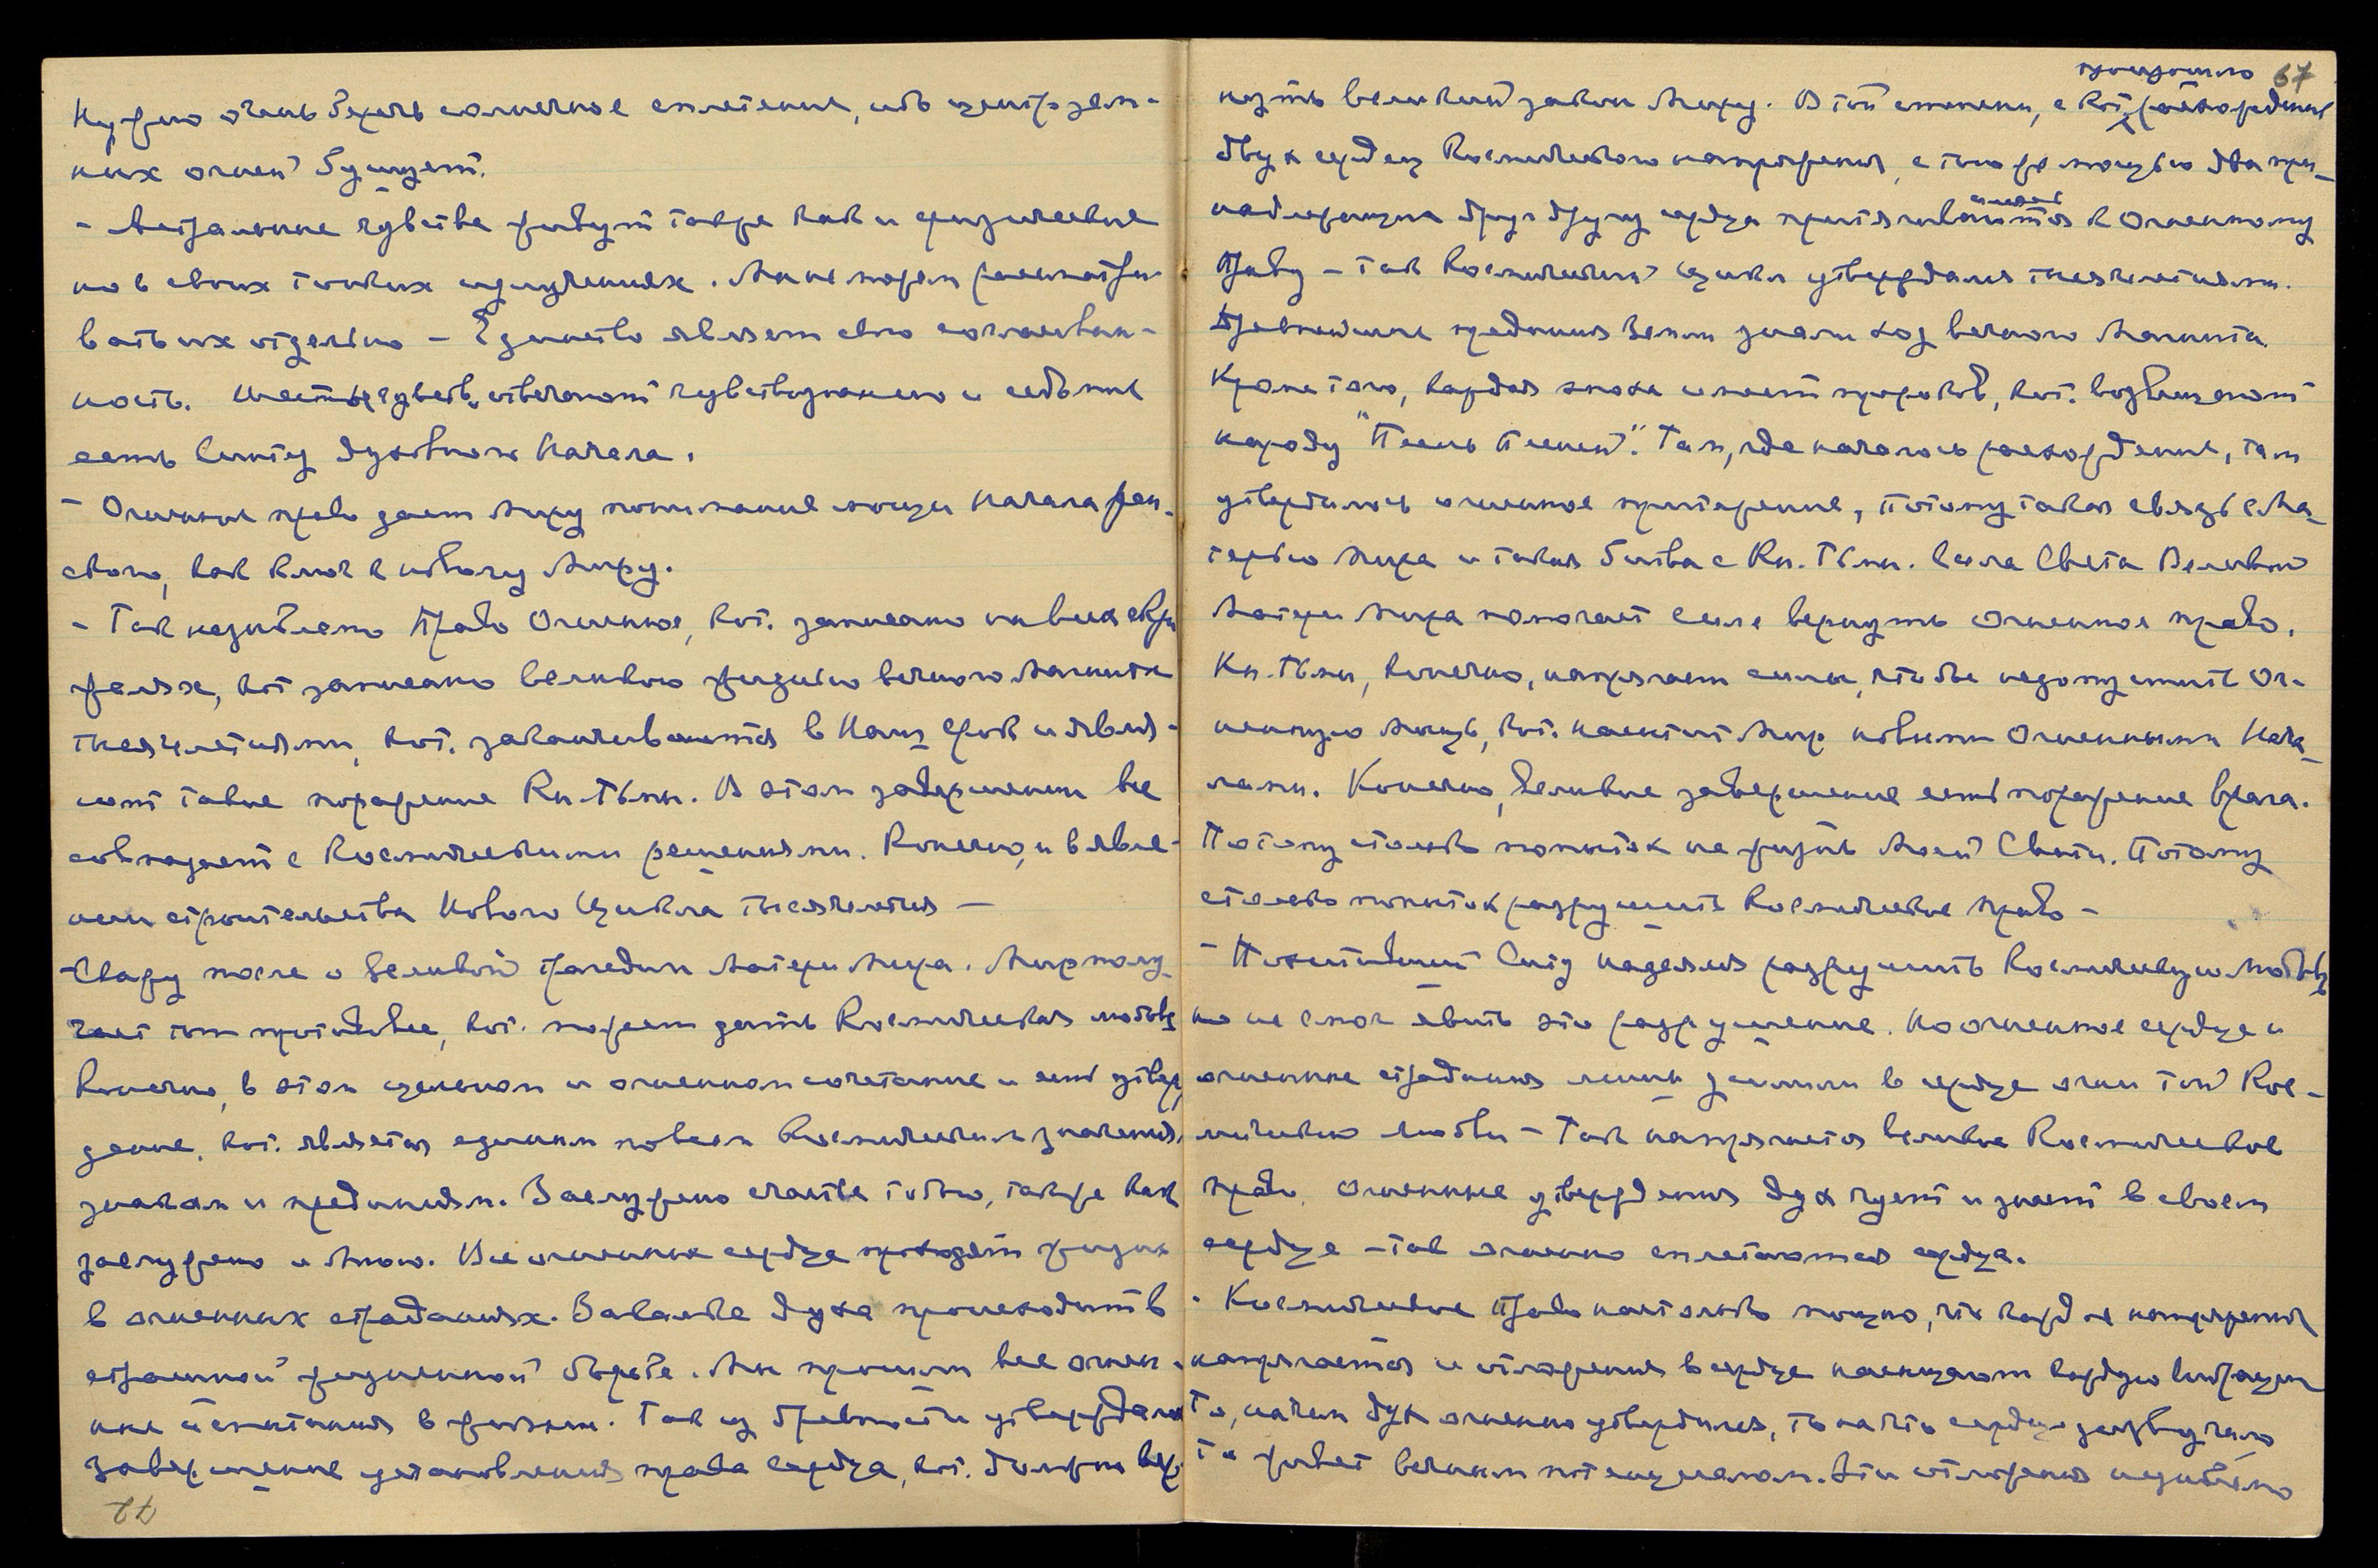 Нужно очень беречь солнечное сплетение, ибо центр зем-
ных огней бушует.
- Астральные чувства живут также как и физические
но в своих тонких излучениях. Мы не можем рассматри-
вать их отдельно – Единство являет свою согласован-
ность. чувств отвечают чувствознанию и седьмые
есть Синтез духовного Начала.
- Огненное право дает миру понимание мощи Начала жен-
ского, как ключ к новому Миру.
- Так незыблемо Право Огненное, кот. записано на всех скри
жалях, кот записано великою жизнью вечного Магнита
тысячелетиями, кот. заканчиваются в Наш срок и явля-
ют такие поражение Кн. Тьмы. В этом завершении все
совпадает с Космическими решениями. Конечно, и в явле-
нии строительства Нового Цикла тысячелетия –
- Скажу после о Великой трагедии Матери Мира. Мир полу
чает тот противовес, кот. может дать Космическая любовь
Конечно, в этом цельном и огненном сочетание и есть утвер
дение, кот. является единым по всем Космическим значениям,
знакам и преданиям. Заслужено счастье тобою, также как
заслужено и Мною. Все огненные сердца проходят жизнь
в огненных страданиях. Закалка духа происходит в
страшной жизненной борьбе. Мы прошли все огнен-
ные испытания в жизни. Так из древности утверждался
завершение установления права сердца, кот. должно вер-
72
67
произошло
нуть великий закон Миру. В той степени, с кот. расхождение
двух сердец Космического напряжения, с тою же мощью два при-
надлежащие друг другу сердца притягиваются к Огненному
Праву – так Космический Цикл утверждался тысячелетиями.
Древнейшие предания Земли знали ход вечного Магнита.
Кроме того, каждая эпоха имеет пророков, кот. возвещают
народу "Песнь Песней". Там, где началось расхождение, там
утвердилось огненное притяжение, потому такая связь с Ма-
терью Мира и такая битва с Кн. Тьмы. Сила Света Великой
Матери Мира помогает Силе вернуть Огненное право.
Кн. Тьмы, конечно, напрягает силы, чтобы недопустить Ог-
ненную Мощь, кот. насытит Мир новыми Огненными Нача-
лами. Конечно, Великое завершение есть поражение врага.
Потому столько попыток на жизнь Моей Свати. Потому
столько попыток разрушить Космическое право –
- Похититель Сил надеялся разрушить Космическую Любовь,
но не смог явить это разрушение. Но огненное сердце и
огненные страдания лишь зажгли в сердце огни той Кос-
мической любви – Так напрягается великое Космическое
право. Огненные утверждения дух чует и знает в своем
сердце – так огненно сплетаются сердца.
- Космическое Право настолько мощно, что каждое напряжение
напрягается и отложения в сердце насыщают каждую вибрацию
То, на чем дух огненно утвердился, то на что сердце зазвучало
то живет вечным потенциалом. Эти отложения незыблемо